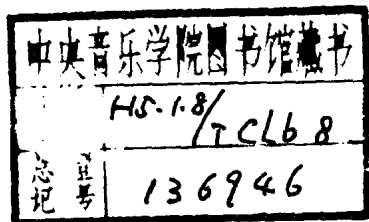 中央音乐学院图书馆藏书
H5·1·8/TCLb8
总登记号 136946